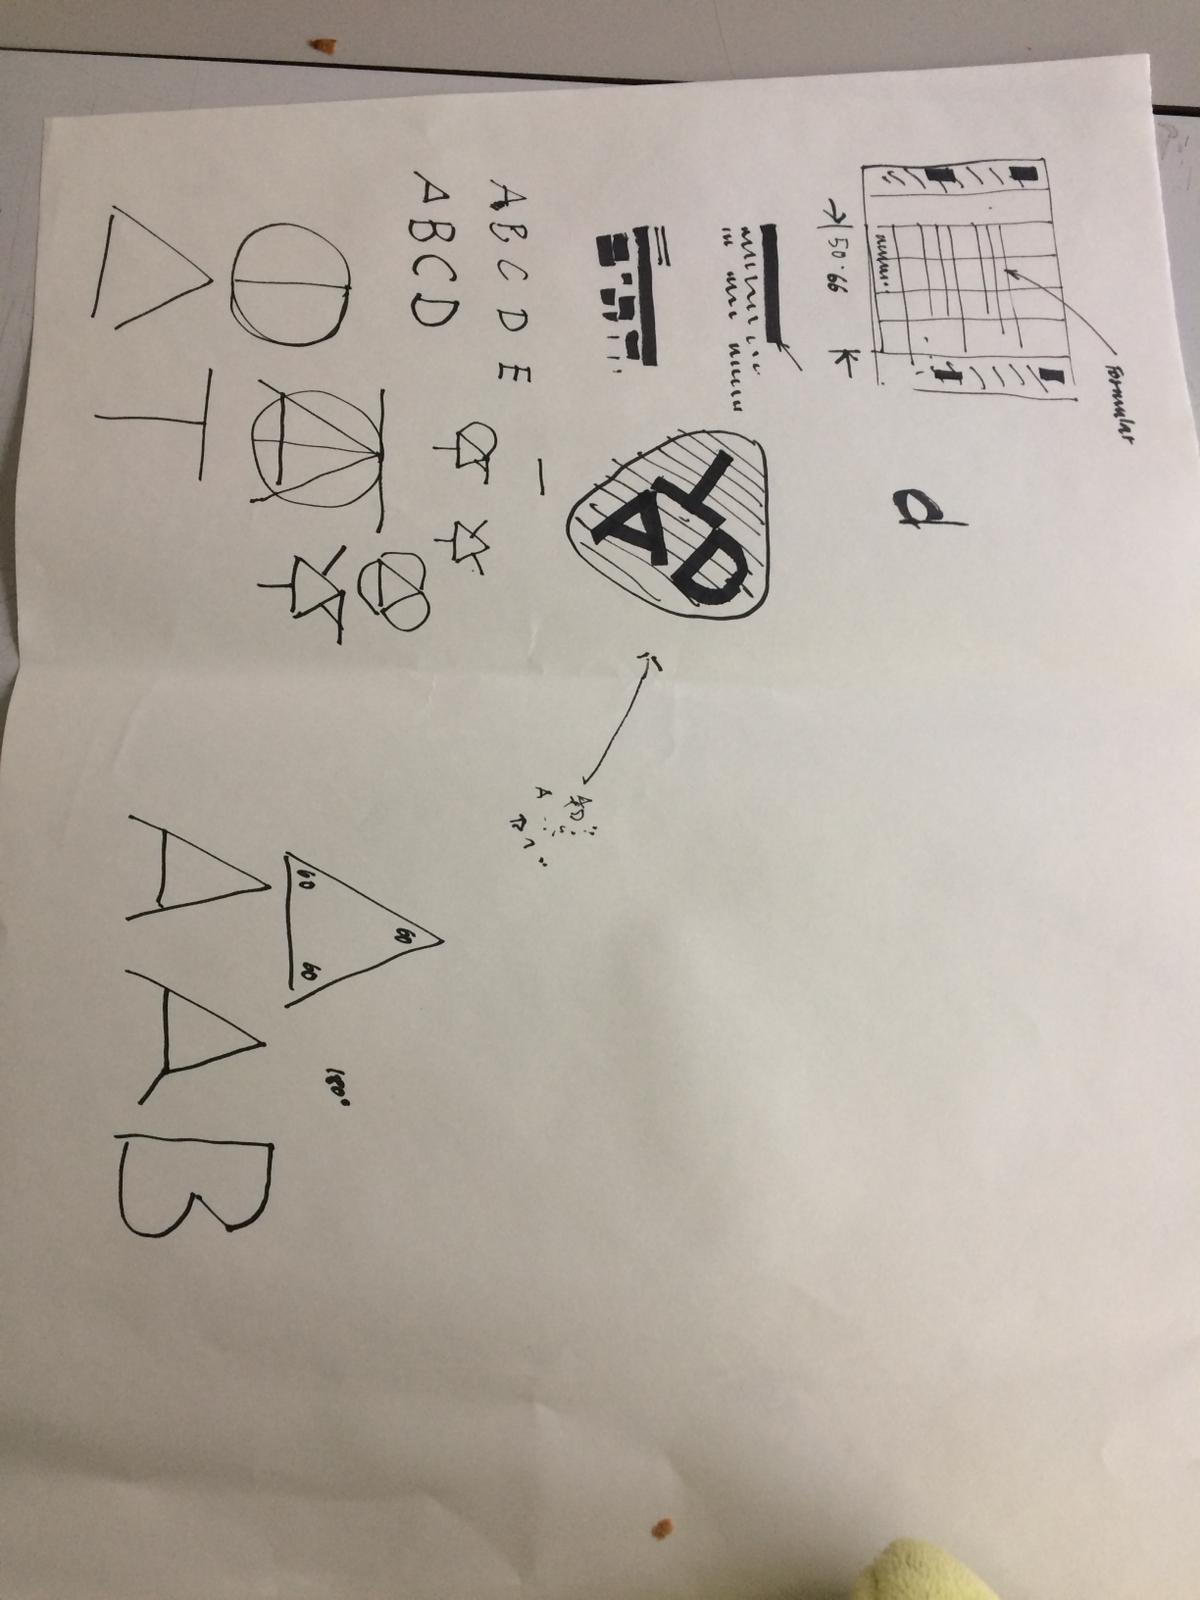 Formular
d
50.66
T D
A
A D
A
A B C D E
A B C D
60
60 60
180°
A A B
T